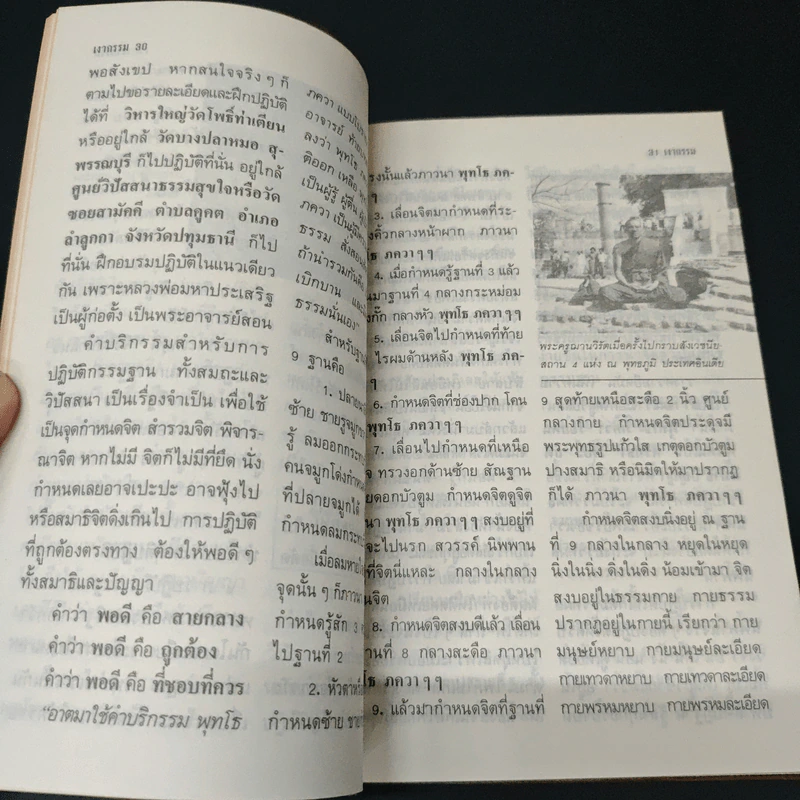 เงากรรม 30
พอสังเขป หากสนใจจริง ๆ ก็
ตามไปขอรายละเอียดและฝึกปฏิบัติ
ได้ที่ วิหารใหญ่วัดโพธิ์ท่าเตียน
หรืออยู่ใกล้ วัดบางปลาหมอ สุ-
พรรณบุรี ก็ไปปฏิบัติที่นั่น อยู่ใกล้
ศูนย์วิปัสสนาธรรมสุขใจหรือวัด
ซอยสามัคคี ตำบลคูคต อำเภอ
ลำลูกกา จังหวัดปทุมธานี ก็ไป
ที่นั่น ฝึกอบรมปฏิบัติในแนวเดียว
กัน เพราะหลวงพ่อมหาประเสริฐ
เป็นผู้ก่อตั้ง เป็นพระอาจารย์สอน
คำบริกรรมสำหรับการ
ปฏิบัติกรรมฐาน ทั้งสมถะและ
วิปัสสนา เป็นเรื่องจำเป็น เพื่อใช้
เป็นจุดกำหนดจิต สำรวมจิต พิจาร-
ณาจิต หากไม่มี จิตก็ไม่มีที่ยึด นั่ง
กำหนดเลยอาจเปะปะ อาจฟุ้งไป
หรือสมาธิจิตดิ่งเกินไป การปฏิบัติ
ที่ถูกต้องตรงทาง ต้องให้พอดี ๆ
ทั้งสมาธิและปัญญา
คำว่า พอดี คือ สายกลาง
คำว่า พอดี คือ ถูกต้อง
คำว่า พอดี คือ ที่ชอบที่ควร
"อาตมาใช้คำบริกรรม พุทโธ
ภควา
อาจารย์
ลงว่า พุทโธ
ติออก เหลือ
เป็นผู้รู้ ผู้ตื่น
ภควา เป็นผู้
ธรรม สั่งสอน
ถ้านำรวมกัน
เบิกบาน
ธรรมนั่นเอง"
สำหรับ
9 ฐานคือ
1. ปลาย
ซ้าย ชายรูจมูก
รู้ ลมออกกระทบ
คนจมูกโด่งกำหนด
ที่ปลายจมูกได้
กำหนดลมกระทบ
เมื่อลมหาย
จุดนั้น ๆ ก็ภาวนา
กำหนดรู้สัก 3
ไปฐานที่ 2
2. หัวตา
กำหนดซ้าย ชาย
31 เงากรรม
รงนั้นแล้วภาวนา พุทโธ ภค-
ๆ
3. เลื่อนจิตมากำหนดที่ระ-
คิ้วกลางหน้าผาก ภาวนา
โธ ภควาๆๆ
4. เมื่อกำหนดรู้ฐานที่ 3 แล้ว
นมาฐานที่ 4 กลางกระหม่อม
กั๊ก กลางหัว พุทโธ ภควาๆๆ
5. เลื่อนจิตไปกำหนดที่ท้าย
ไรผมด้านหลัง พุทโธ ภค-
ๆ
6. กำหนดจิตที่ช่องปาก โคน
พุทโธ ภควาๆๆ
7. เลื่อนไปกำหนดที่เหนือ
อ ทรวงอกด้านซ้าย สัณฐาน
ยดอกบัวตูม กำหนดจิตดูจิต
นา พุทโธ ภควาๆๆ สงบอยู่ที่
จะไปนรก สวรรค์ นิพพาน
ที่จิตนี่แหละ กลางในกลาง
นจิต
8. กำหนดจิตสงบดีแล้ว เลื่อน
านที่ 8 กลางสะดือ ภาวนา
โธ ภควาๆๆ
9. แล้วมากำหนดจิตที่ฐานที่
พระครูญาณวิรัตเมื่อครั้งไปกราบสังเวชนีย-
สถาน 4 แห่ง ณ พุทธภูมิ ประเทศอินเดีย
9 สุดท้ายเหนือสะดือ 2 นิ้ว ศูนย์
กลางกาย กำหนดจิตประดุจมี
พระพุทธรูปแก้วใส เกตุดอกบัวตูม
ปางสมาธิ หรือนิมิตให้มาปรากฏ
ก็ได้ ภาวนา พุทโธ ภควาๆๆ
กำหนดจิตสงบนิ่งอยู่ ณ ฐาน
ที่ 9 กลางในกลาง หยุดในหยุด
นิ่งในนิ่ง ดิ่งในดิ่ง น้อมเข้ามา จิต
สงบอยู่ในธรรมกาย กายธรรม
ปรากฏอยู่ในกายนี้ เรียกว่า กาย
มนุษย์หยาบ กายมนุษย์ละเอียด
กายเทวดาหยาบ กายเทวดาละเอียด
กายพรหมหยาบ กายพรหมละเอียด